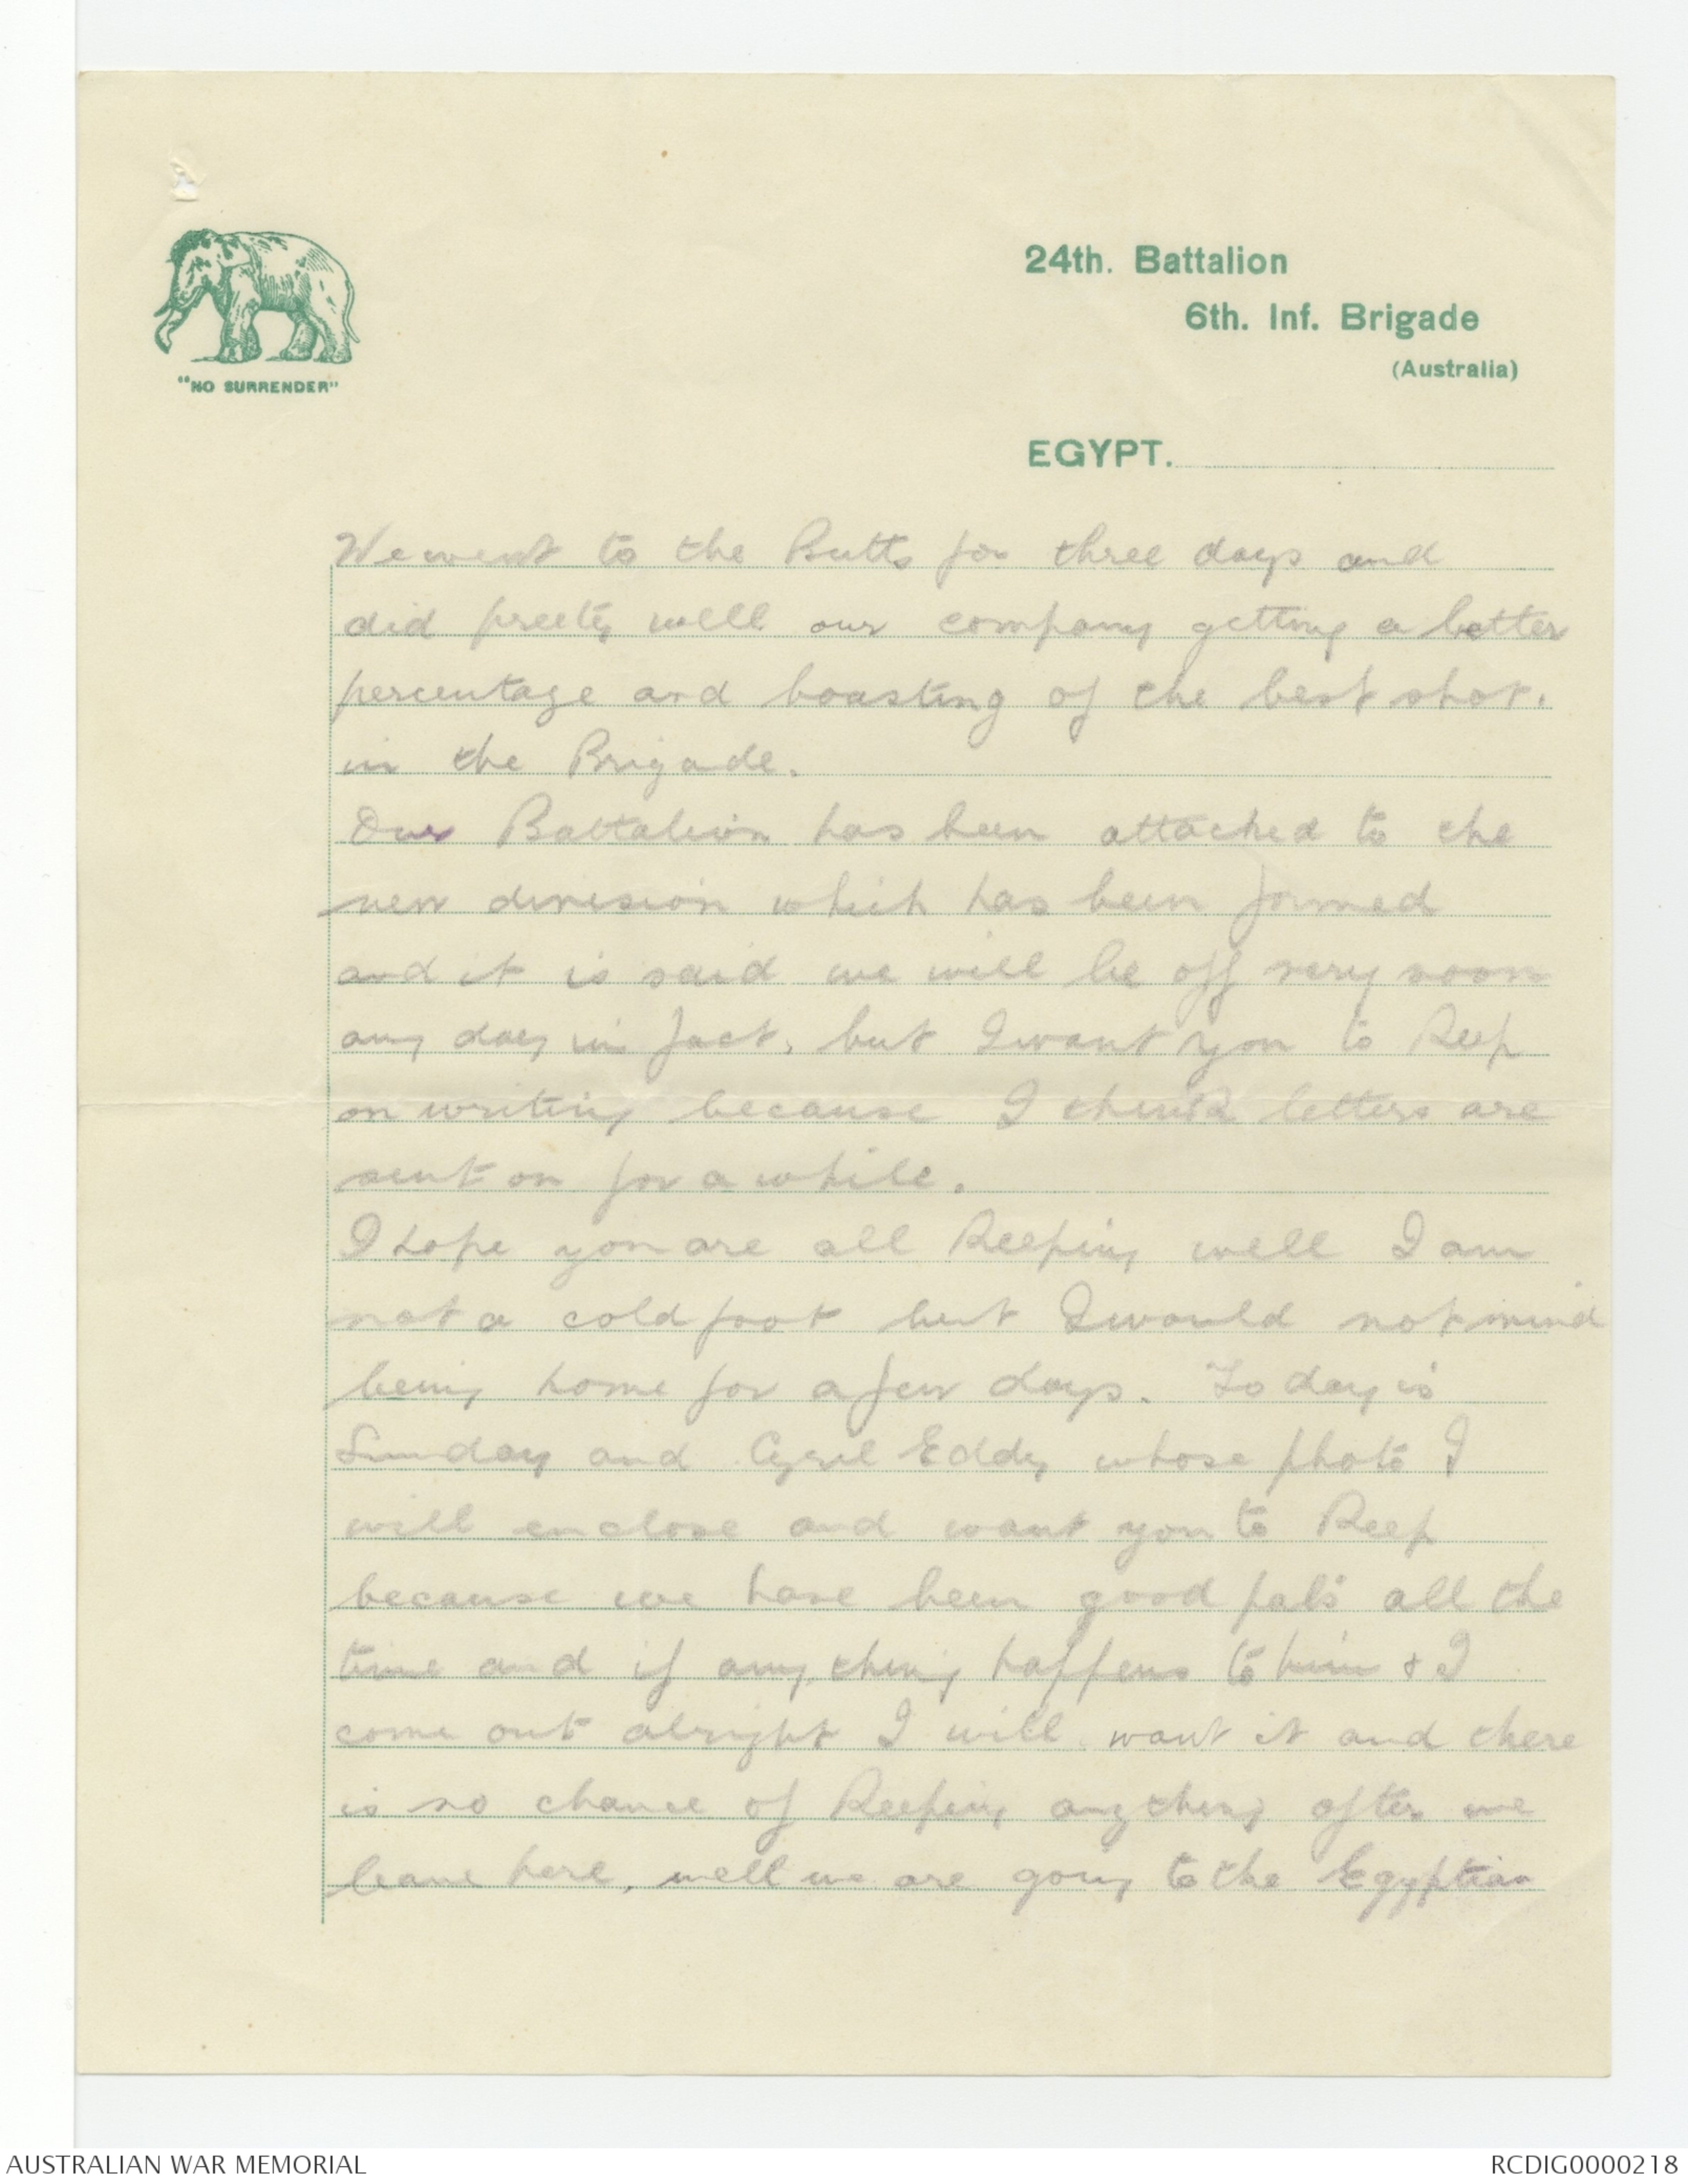 24th. Battalion
6th. Inf. Brigade
(Australia)
"NO SURRENDER"
EGYPT.
We went to the Butts for three days and
did preety well our company getting a better
percentage and boasting of the best shot.
in the Brigade.
Our Battalion has been attached to the
new division which has been formed
and it is said we will be off very soon
any day in fact, but I want you to keep
on writing because I think letters are
sent on for a while.
I hope you are all keeping well I am
not a cold foot but I would not mind
being home for a few days. To day is
Sunday and Cyril Eddy whose photo I
will enclose and want you to keep
because we have been good pals all the
time and if any thing happens to him & I
come out alright I will want it and there
is no chance of keeping anything after we
leave here, well we are going to the Egyptian
AUSTRALIAN WAR MEMORIAL
RCDIG0000218